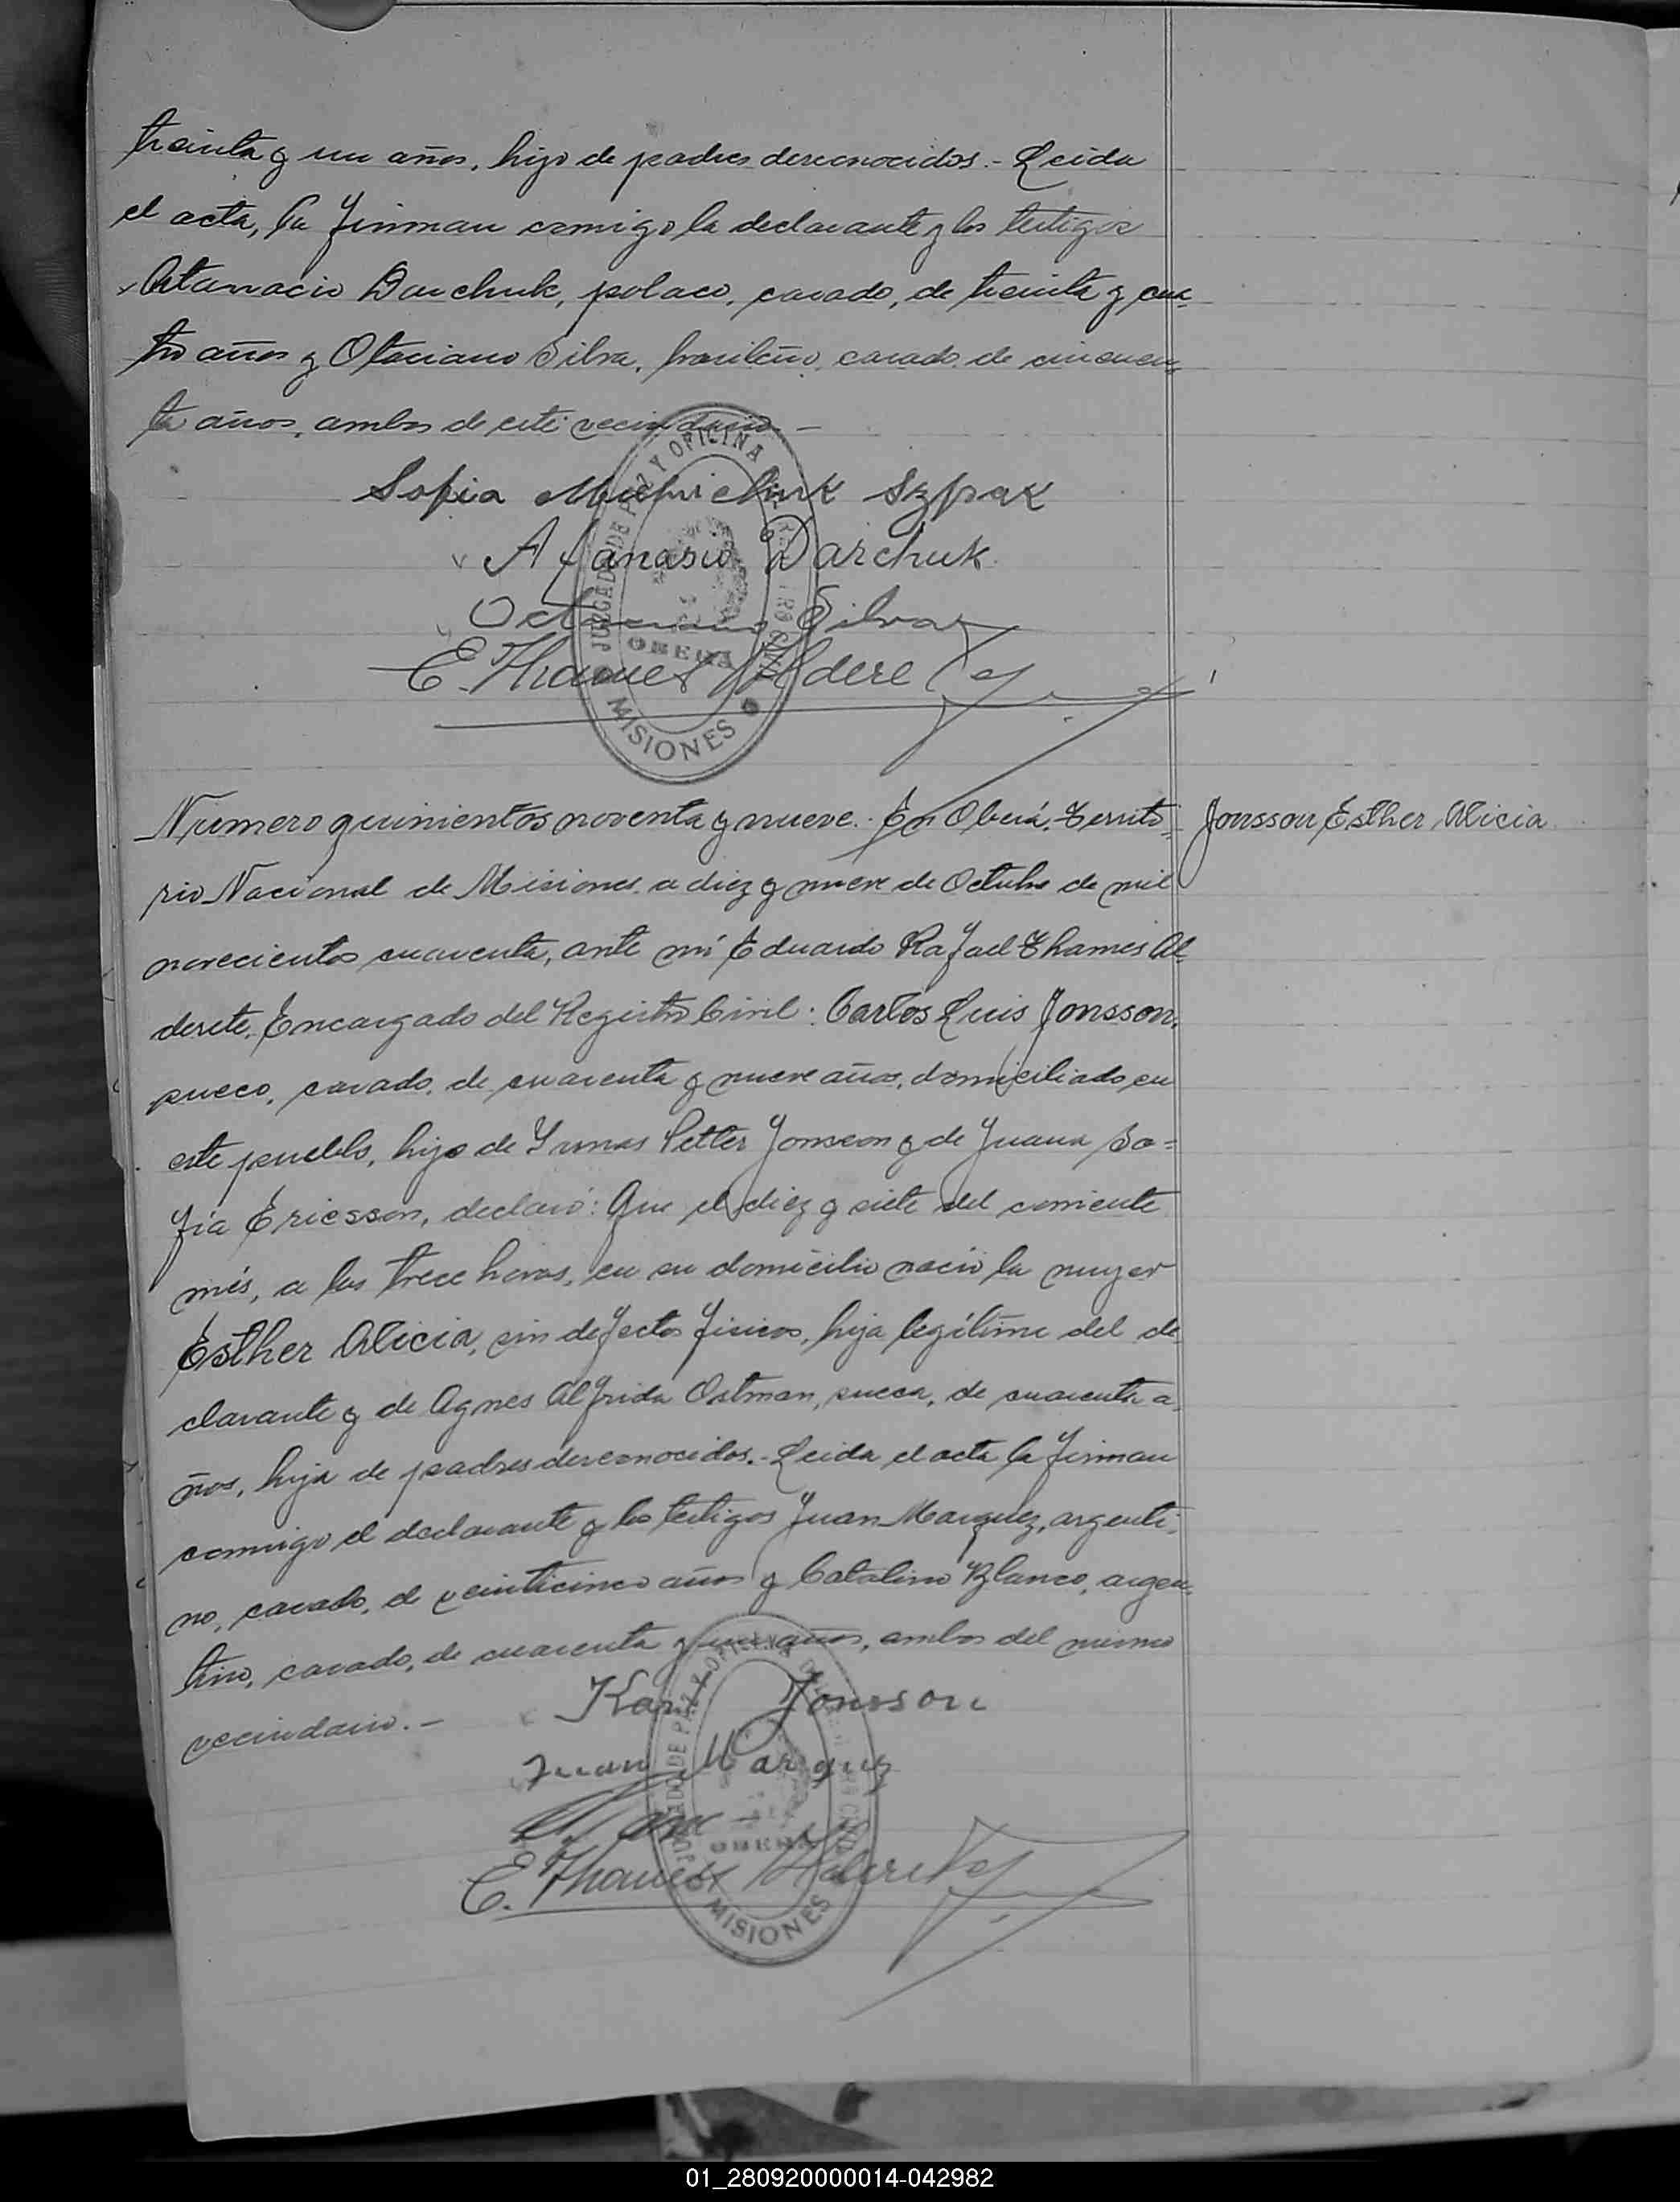 treinta y un años, hijo de padres desconocidos.- Leida
el acta, la firman comigo la declarante y los testigos
Atanacio Darchuk, polaco, casado, de treinta y cua-
tro años y Otaciano Silva, brasileño, casado, de cincuen-
ta años, ambos de este vecindario.-
Sofia Szpak
Afanasio Darchuk
Octaviano Silva
E. Thames Alderete
JUZGADO DE PAZ Y OFICINA
OBERÁ
MISIONES
Número quinientos noventa y nueve.- En Oberá, Territo-
Jonsson Esther Alicia
rio Nacional de Misiones, a diez y nueve de Octubre de mil
novecientos cuarenta, ante mí Eduardo Rafael Thames Al-
derete, Encargado del Registro Civil: Carlos Luis Jonsson,
sueco, casado, de cuarenta y nueve años, domiciliado en
este pueblo, hijo de Petter Jonsson y de Juana So=
fía Ericsson, declaró: Que el diez y siete del corriente
més, a las trece horas, en su domicilio nació la mujer
Esther Alicia, sin defectos físicos, hija legítima del de-
clarante y de Agnes Alfrida Ostman, sueca, de cuarenta a-
ños, hija de padres desconocidos.- Leida el acta la firman
conmigo el declarante y los testigos Juan Marquez, argenti-
no, casado, de veinticinco años y Catalino Blanco, argen-
tino, casado, de cuarenta y un años, ambos del mismo
vecindario.-
Karl Jonsson
Juan Marquz
E. Thames Alderete
JUZGADO DE PAZ Y OFICINA
OBERÁ
MISIONES
01_280920000014-042982